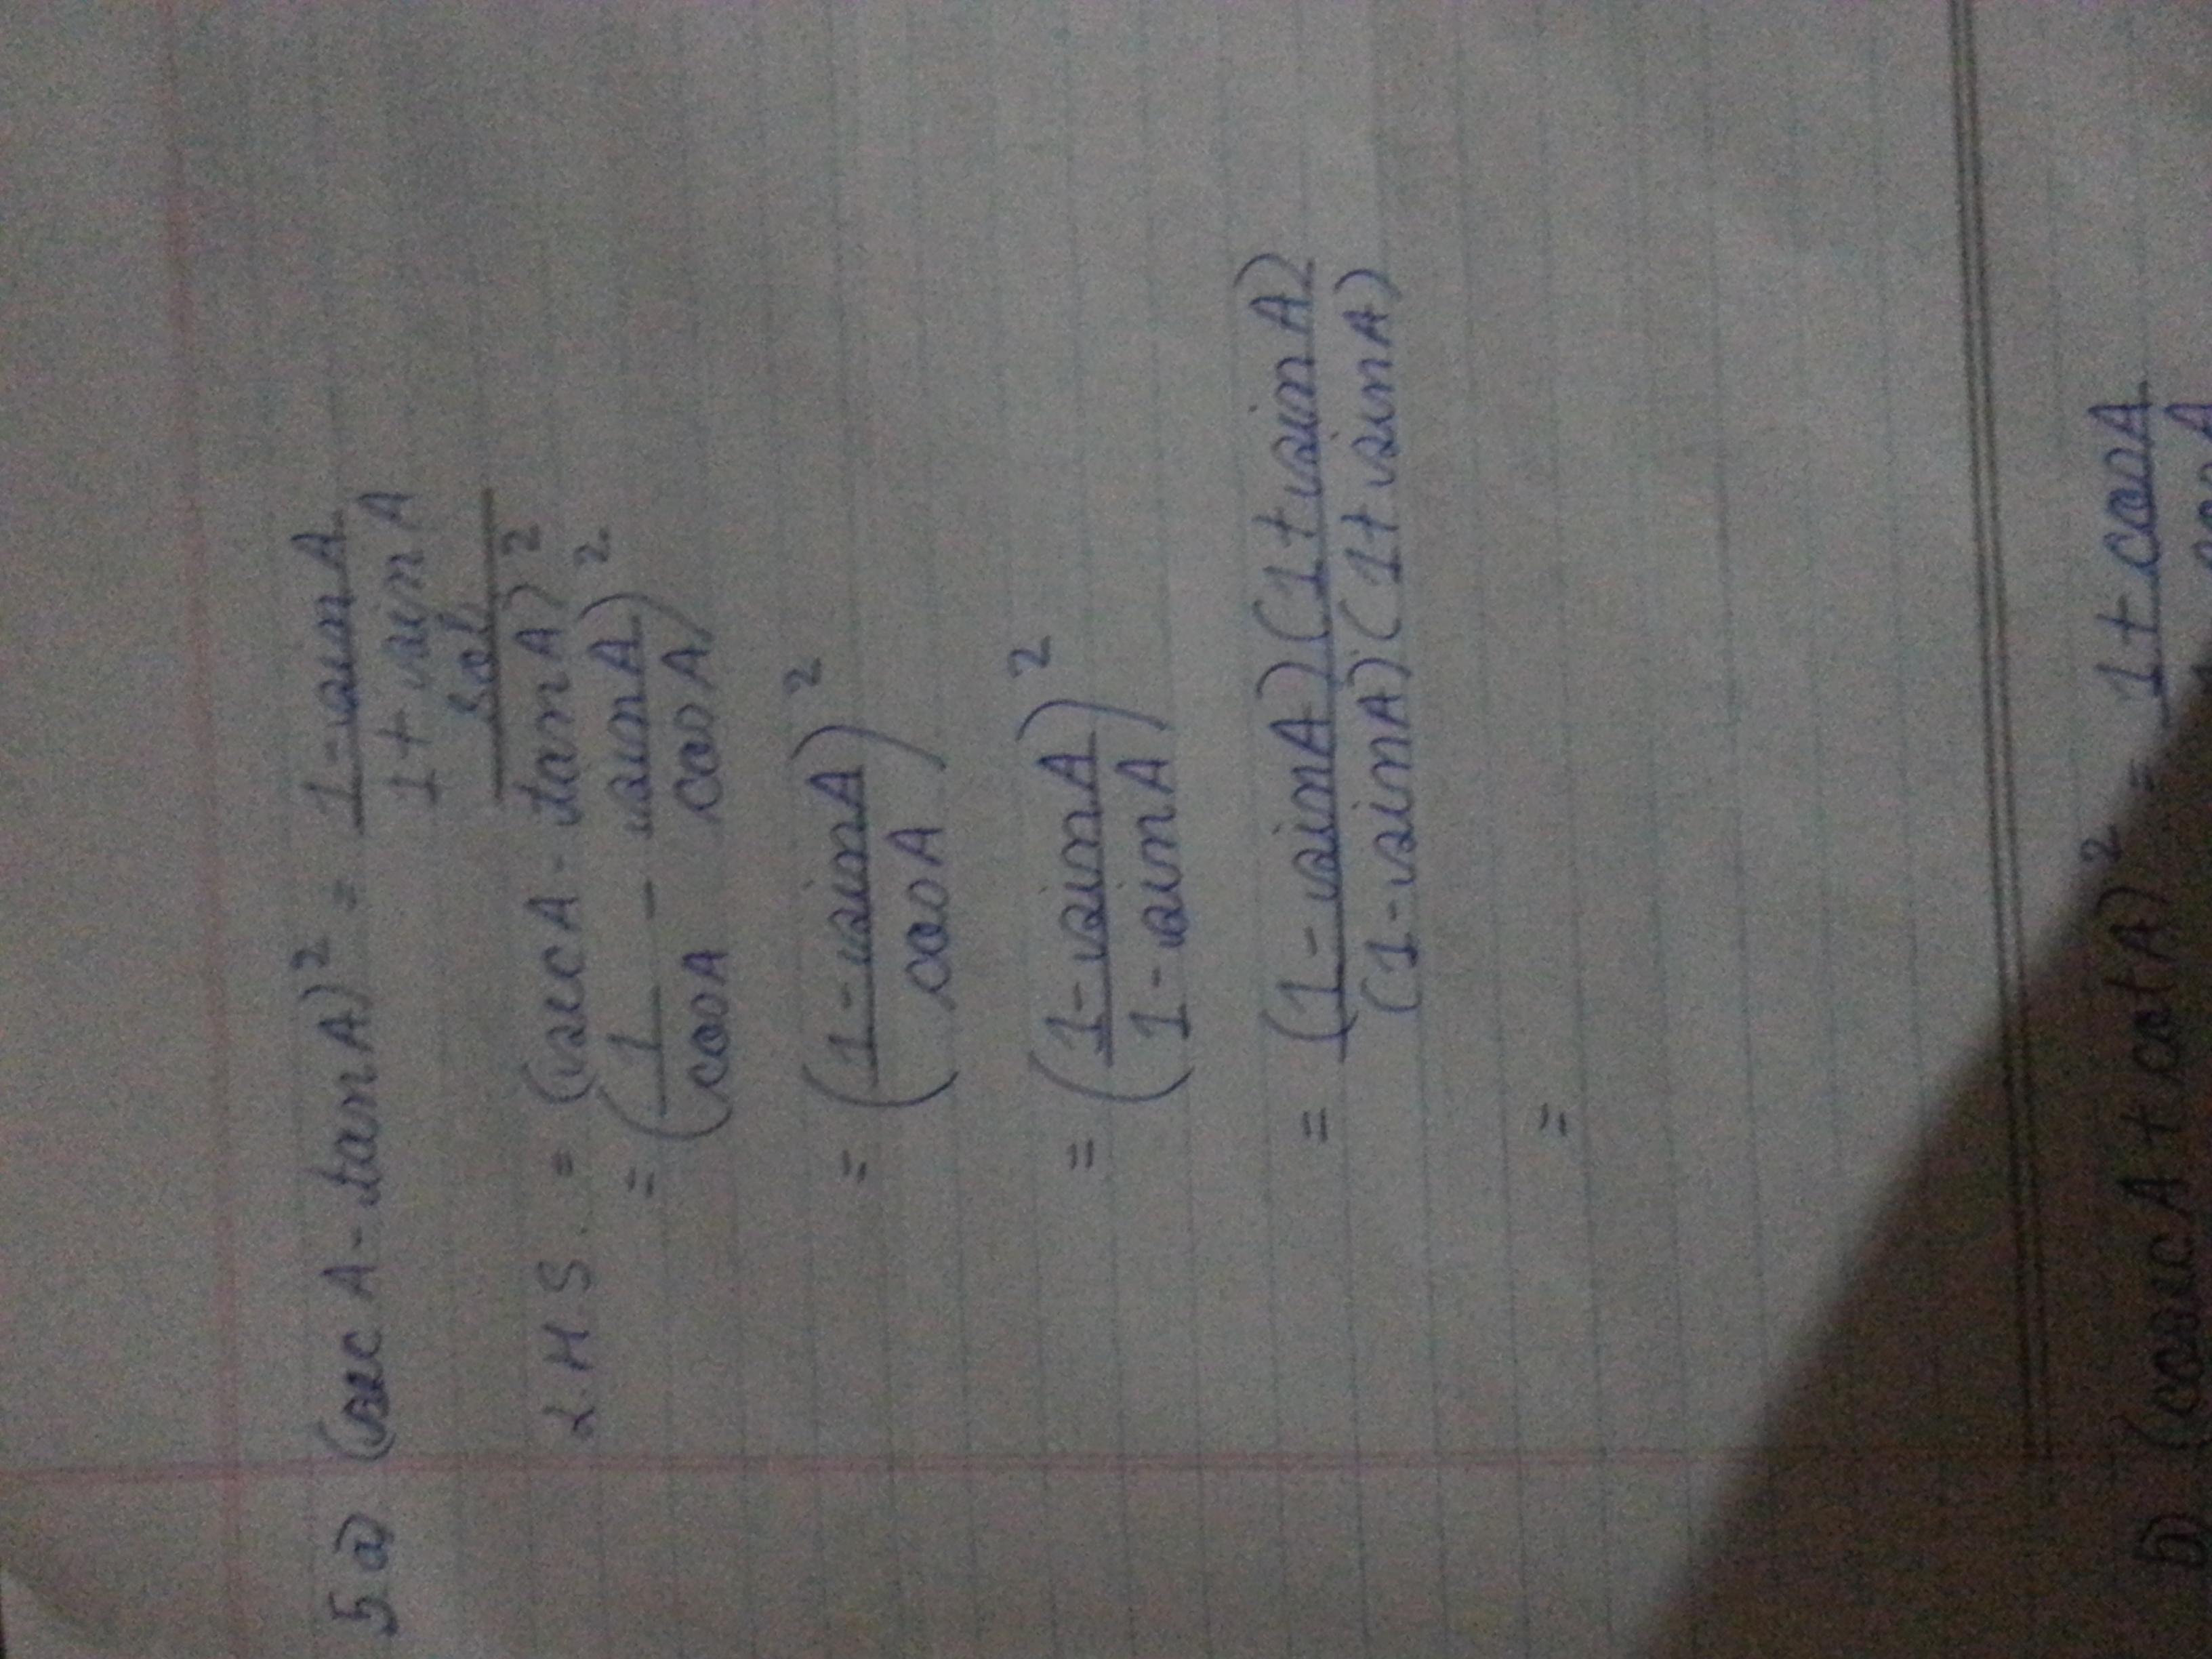 5 a) (sec A - tan A)² = (1 - sin A)/(1 + sin A)
Sol
L.H.S. = (sec A - tan A)²
= (1/cos A - sin A/cos A)²
= ((1 - sin A)/cos A)²
= ((1 - sin A)/(1 - sin A))²
= (1 - sin A)(1 + sin A)/(1 - sin A)(1 + sin A)
=
b) (cosec A + cot A)² = 1 + cos A
cos A